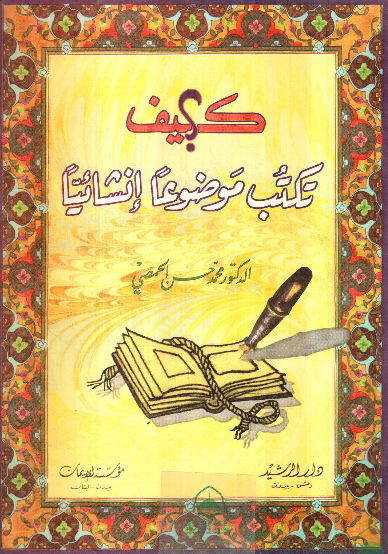 كيف؟
تكتب موضوعاً إنشائيّاً
الدكتور محمد حسن الحمصي
دار الرشيد
دمشق - بيروت
مؤسسة الإيمان
بيروت - لبنان